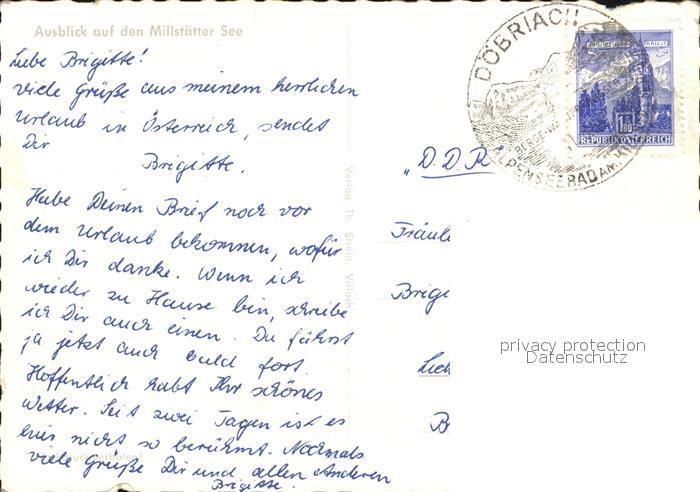 Ausblick auf den Millstätter See
Liebe Brigitte!
viele Grüße aus meinem herrlichen
Urlaub in Österreich, sendet
Dir
Brigitte.
Habe Deinen Brief noch vor
dem Urlaub bekommen, wofür
ich Dir danke. Wenn ich
wieder zu Hause bin, schreibe
ich Dir auch einen. Du fährst
ja jetzt auch bald fort.
Hoffentlich habt Ihr schönes
Wetter. Seit zwei Tagen ist es
hier nicht so berühmt. Nochmals
viele Grüße Dir und allen Anderen
Brigitte.
verboten!
Verlag Th.
DÖBRIACH
1.80
REPUBLIK ÖSTERREICH
"D.D.R"
Fräule
Brige
B
privacy protection
Datenschutz